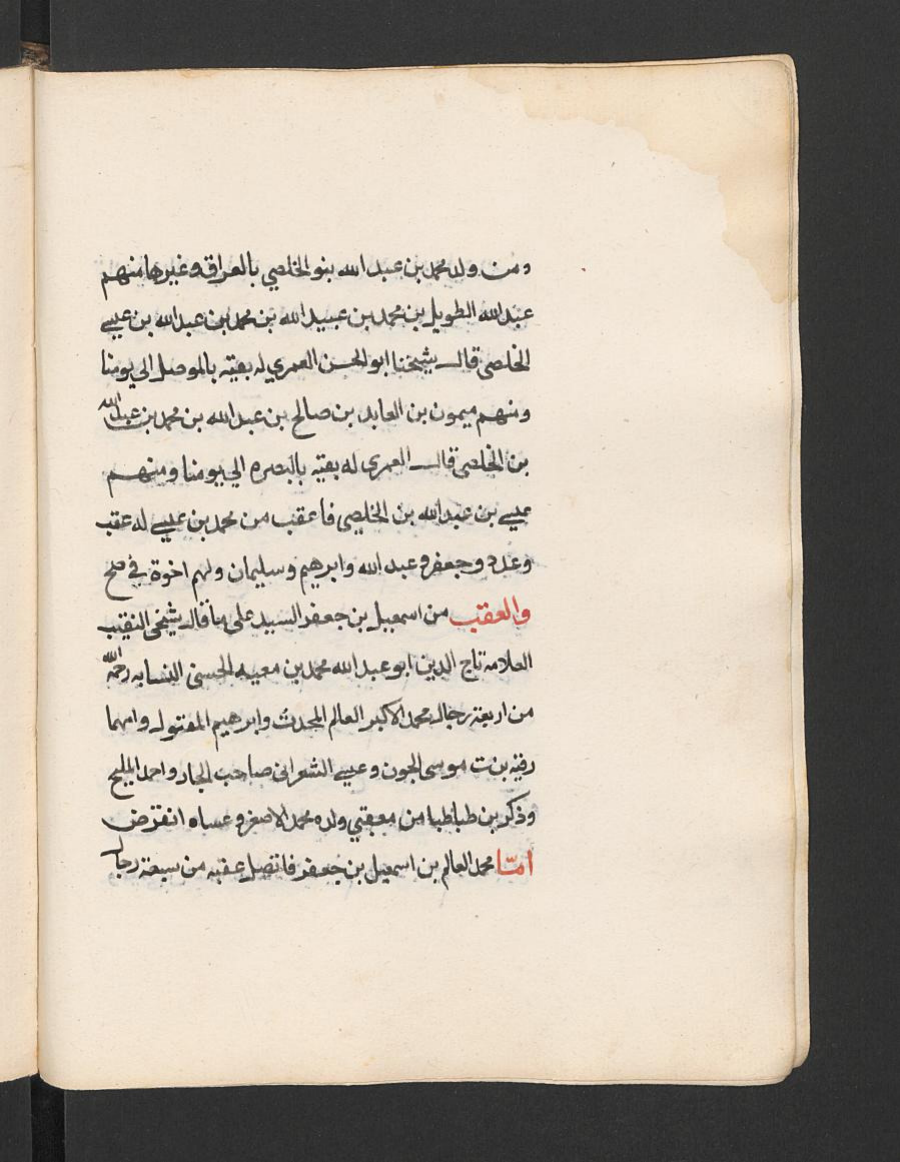 ومن ولد محمد بن عبد الله بنو الخلصي بالعراق وغيرها منهم
عبد الله الطويل بن محمد بن عبيد الله بن محمد بن عبد الله بن عيسى
الخلصي قال شيخنا ابو الحسن العمري له بقية بالموصل الى يومنا
ومنهم ميمون بن العابد بن صالح بن عبد الله بن محمد بن عبد الله
بن الخلصي قال العمري له بقيه بالبصره الي يومنا ومنهم
عيسى بن عبد الله بن الخلصي فاعقب من محمد بن عيسى له عقب
وعدد وجعفر وعبد الله وابرهيم وسليمان ولهم اخوة في صح
والعقب من اسمعيل بن جعفر السيد على ما قال شيخي النقيب
العلامه تاج الدين ابو عبد الله محمد بن معيه الحسنى النسابه رحمه الله
من اربعة رجال محمد الاكبر العالم المحدث وابرهيم المقتول وامهما
رقيه بنت موسى الجون وعيسى الشعرانى صاحب الجار واحمد المليح
وذكر بن طباطبا من معقبي ولده محمد الاصغر وعساه انقرض
امّا محمد العالم بن اسمعيل بن جعفر فاتصل عقبه من سبعة رجال